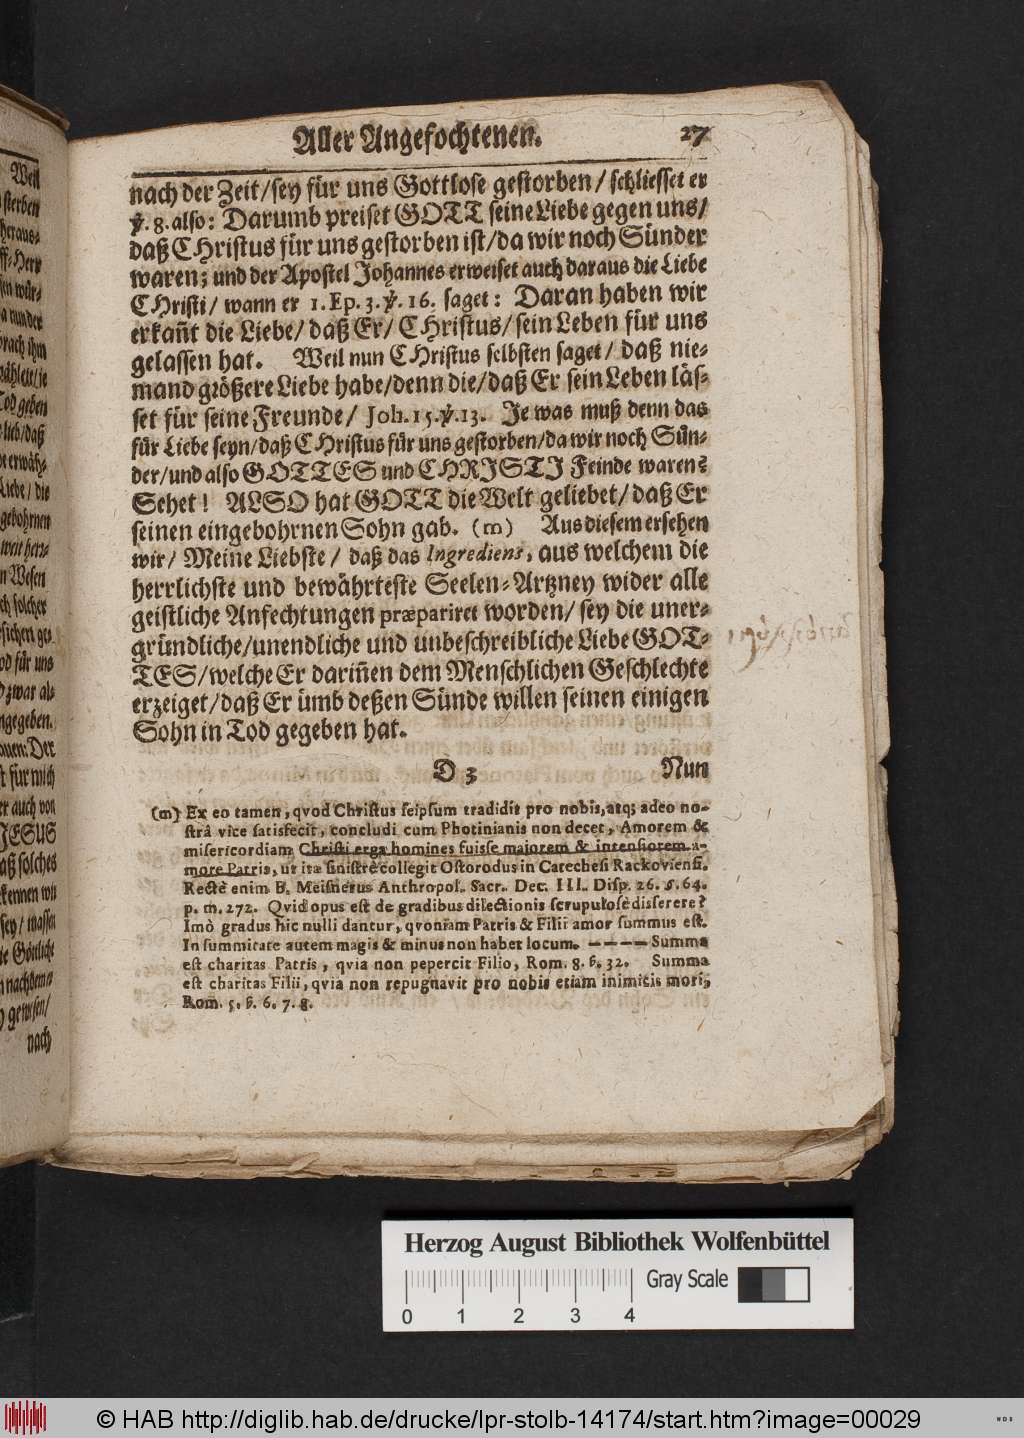 Aller Angefochtenen. 27
nach der Zeit/sey für uns Gottlose gestorben/ schliesset er
ꝟ. 8. also: Darumb preiset GOTT seine Liebe gegen uns/
daß CHristus für uns gestorben ist/da wir noch Sünder
waren; und der Apostel Johannes erweiset auch daraus die Liebe
CHristi/ wann er 1. Ep. 3. ꝟ. 16. saget: Daran haben wir
erkañt die Liebe/ daß Er/ CHristus/ sein Leben für uns
gelassen hat. Weil nun CHristus selbsten saget/ daß nie-
mand größere Liebe habe/denn die/daß Er sein Leben läs-
set für seine Freunde/ Joh. 15. ꝟ. 13. Je was muß denn das
für Liebe seyn/daß CHristus für uns gestorben/da wir noch Sün-
der/und also GOTTES und CHRISTI Feinde waren?
Sehet! ALSO hat GOTT die Welt geliebet/ daß Er
seinen eingebohrnen Sohn gab. (m) Aus diesem ersehen
wir/ Meine Liebste/ daß das Ingrediens, aus welchem die
herrlichste und bewährteste Seelen-Artzney wider alle
geistliche Anfechtungen præpariret worden/ sey die uner-
gründliche/unendliche und unbeschreibliche Liebe GOT-
TES/welche Er dariñen dem Menschlichen Geschlechte
erzeiget/daß Er ümb deßen Sünde willen seinen einigen
Sohn in Tod gegeben hat.
D 3 Nun
(m) Ex eo tamen, qvod Christus seipsum tradidit pro nobis, atq; adeo no-
strâ vice satisfecit, concludi cum Photinianis non decet, Amorem &
misericordiam Christi erga homines fuisse majorem & intensiorem a-
more Patris, ut ita sinistrè collegit Ostorodus in Catechesi Rackoviensi.
Rectè enim B. Meisnerus Anthropol. Sacr. Dec. III. Disp. 26. §. 64.
p. m. 272. Qvid opus est de gradibus dilectionis scrupulosè disserere?
Imò gradus hîc nulli dantur, qvoniam Patris & Filii amor summus est.
In summitate autem magis & minus non habet locum. ---- Summa
est charitas Patris, qvia non pepercit Filio, Rom. 8. ꝟ. 32. Summa
est charitas Filii, qvia non repugnavit pro nobis etiam inimicis mori,
Rom. 5. ꝟ. 6. 7. 8.
Weil
sterben
heraus-
Herr
wür-
nun der
sprach ihm
Tod geben
lieb/daß
erwäh-
Liebe/ die
gebohrnen
Wesen
solcher
für uns
zwar al-
gegeben.
Der
für mich
er auch von
JESUS
daß solches
kennen wir
sey/ massen
die Göttliche
nachdem
gewesen/
nach
Herzog August Bibliothek Wolfenbüttel
Gray Scale
0 1 2 3 4
© HAB http://diglib.hab.de/drucke/lpr-stolb-14174/start.htm?image=00029
HAB